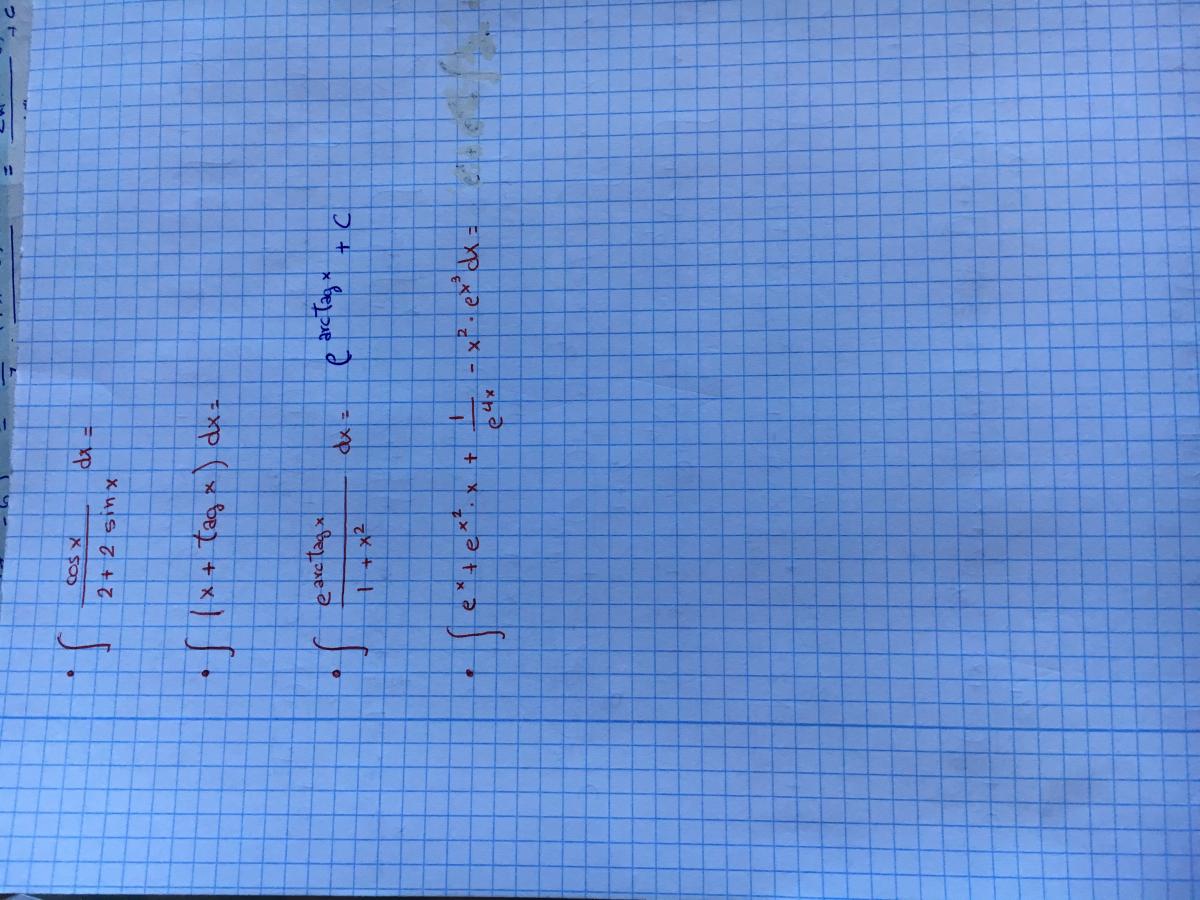 • ∫ cos x / (2 + 2 sin x) dx =
• ∫ (x + tag x) dx =
• ∫ e^(arctag x) / (1 + x²) dx = e^(arctag x) + C
• ∫ e^x + e^(x²) · x + 1 / e^(4x) - x² · e^(x³) dx =